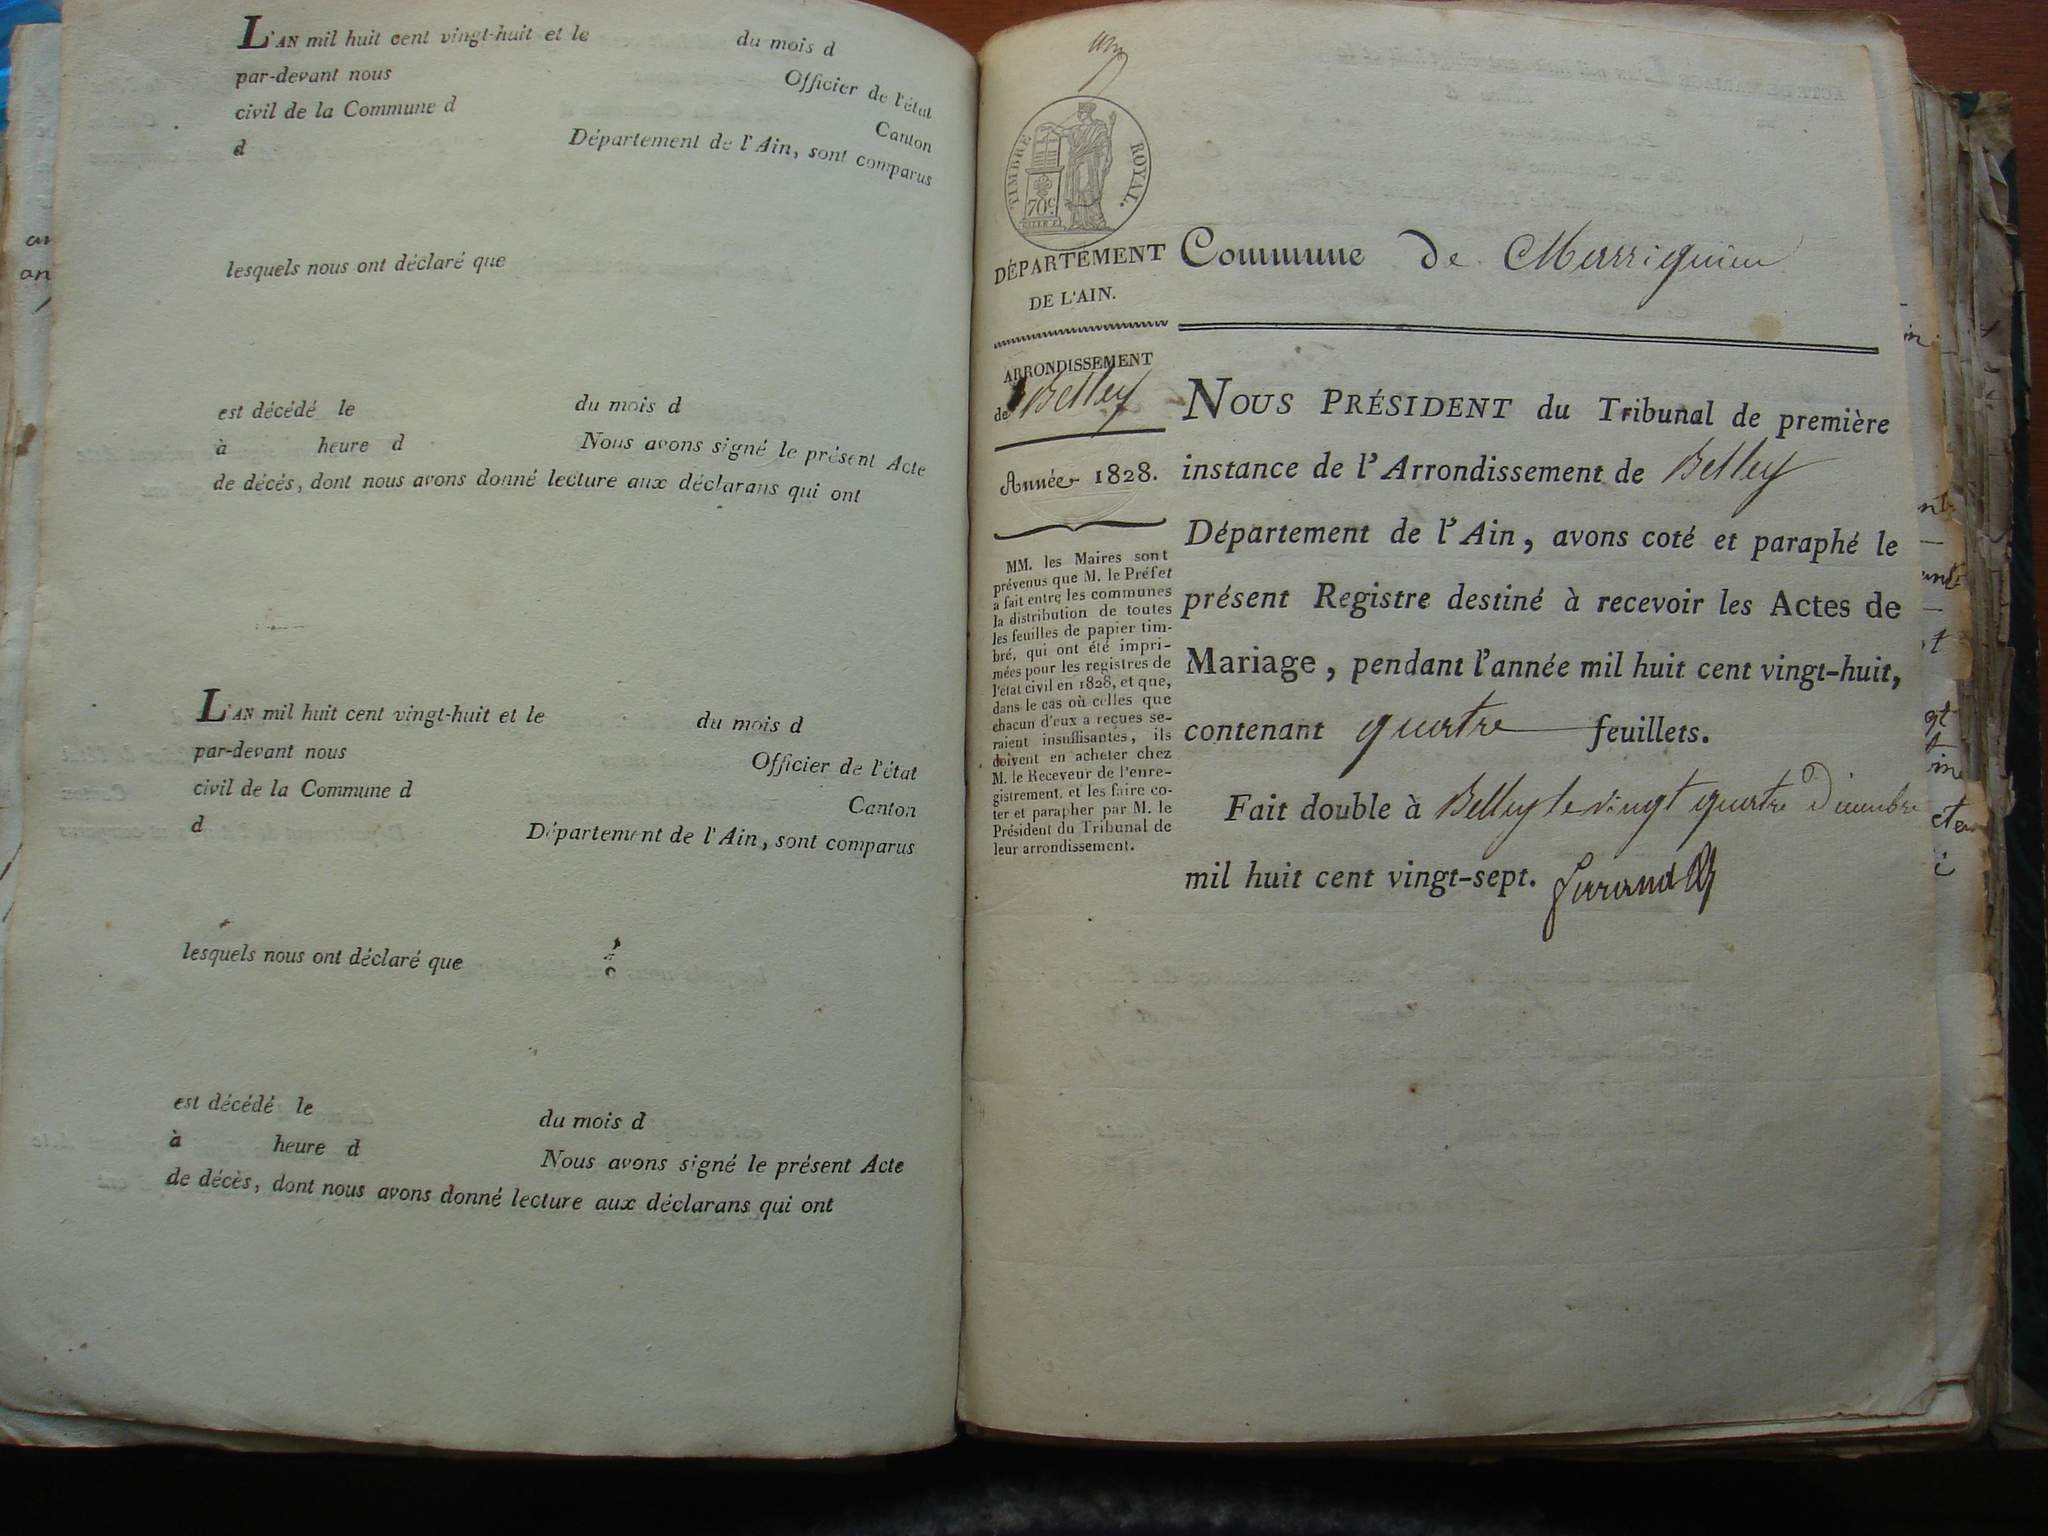 L'AN mil huit cent vingt-huit et le du mois d
par-devant nous Officier de l'état
civil de la Commune d Canton
d Département de l'Ain, sont comparus
lesquels nous ont déclaré que
est décédé le du mois d
à heure d Nous avons signé le présent Acte
de décès, dont nous avons donné lecture aux déclarans qui ont
L'AN mil huit cent vingt-huit et le du mois d
par-devant nous Officier de l'état
civil de la Commune d Canton
d Département de l'Ain, sont comparus
lesquels nous ont déclaré que
est décédé le du mois d
à heure d Nous avons signé le présent Acte
de décès, dont nous avons donné lecture aux déclarans qui ont
TIMBRE ROYAL.
70c
DÉPARTEMENT
DE L'AIN.
ARRONDISSEMENT
de Belley
Année 1828.
MM. les Maires sont
prévenus que M. le Préfet
a fait entre les communes
la distribution de toutes
les feuilles de papier tim-
bré, qui ont été impri-
mées pour les registres de
l'état civil en 1828, et que,
dans le cas où celles que
chacun d'eux a reçues se-
raient insuffisantes, ils
doivent en acheter chez
M. le Receveur de l'enre-
gistrement, et les faire co-
ter et parapher par M. le
Président du Tribunal de
leur arrondissement.
Commune de Marrignieu
NOUS PRÉSIDENT du Tribunal de première
instance de l'Arrondissement de Belley
Département de l'Ain, avons coté et paraphé le
présent Registre destiné à recevoir les Actes de
Mariage, pendant l'année mil huit cent vingt-huit,
contenant quatre feuillets.
Fait double à Belley le vingt quatre Décembre
mil huit cent vingt-sept.